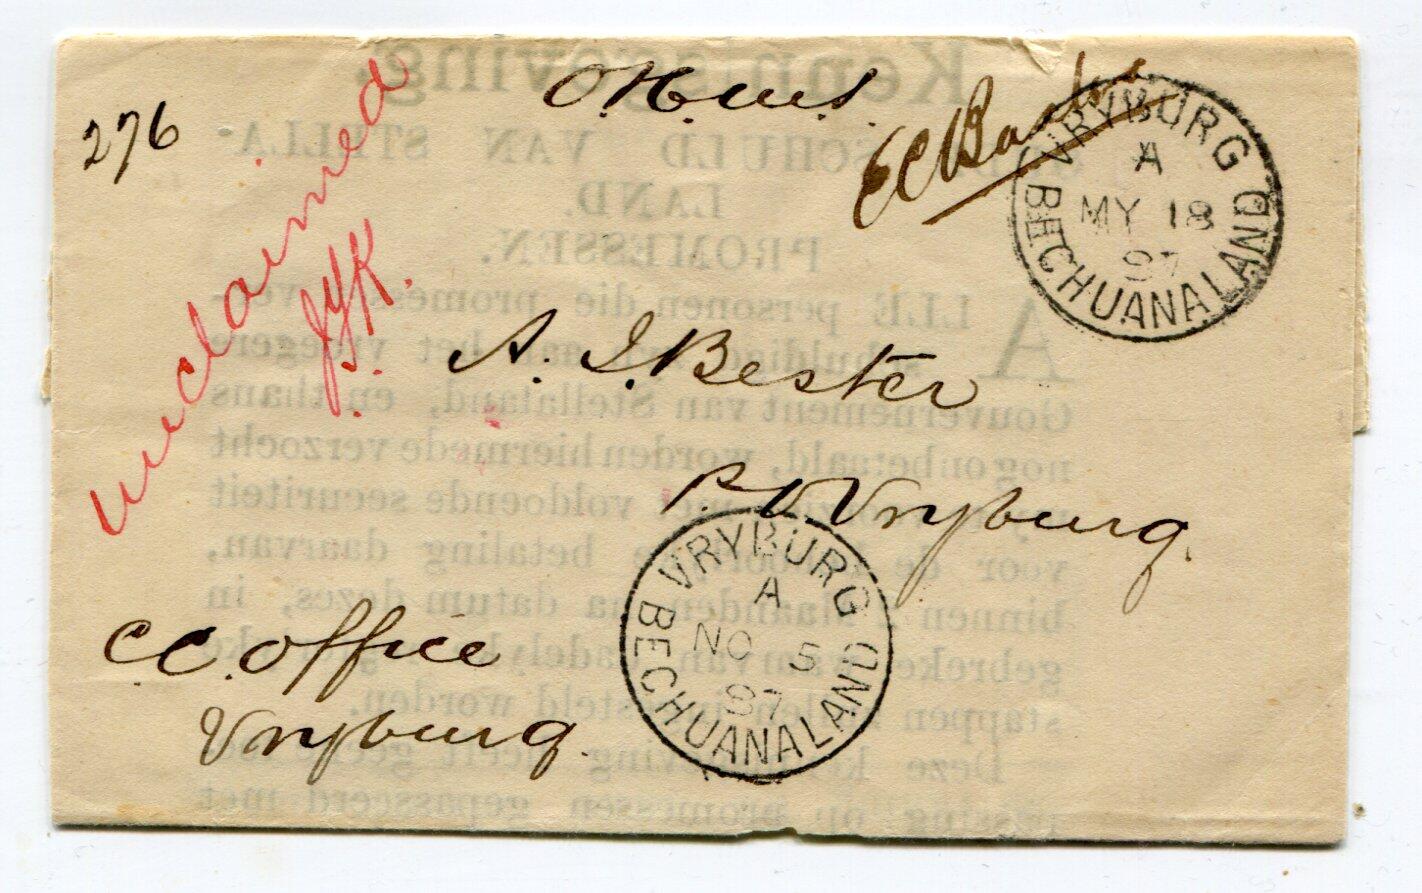 276
O.H.M.S.
unclaimed
J.Y.K.
VRYBURG
A
MY 18
97
BECHUANALAND
A. J. Bester
P. O. Vryburg.
VRYBURG
A
NO 5
97
BECHUANALAND
C. C. Office
Vryburg.
Kennisgeving.
SCHULD VAN STELLA-
LAND.
PROMESSEN.
ALLE personen die promessen ver-
schuldigd zyn aan het vroegere
Gouvernement van Stellaland, en thans
nog onbetaald, worden hiermede verzocht
met voldoende securiteit
voor de betaling daarvan,
binnen 2 maanden na datum dezes, in
gebreke waarvan dadelyke
stappen zullen ingesteld worden.
Deze kennisgeving heeft geene
op promessen gepasseerd met